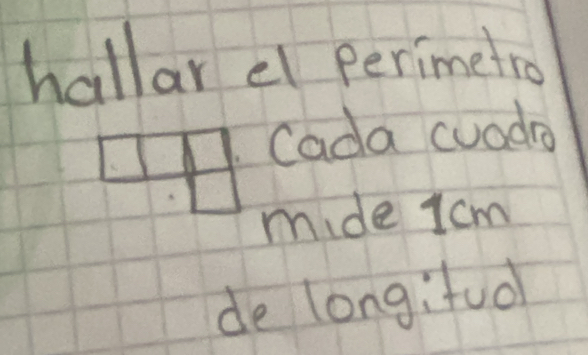 hallar el perimetro
Cada cuadro
mide 1cm
de longitud